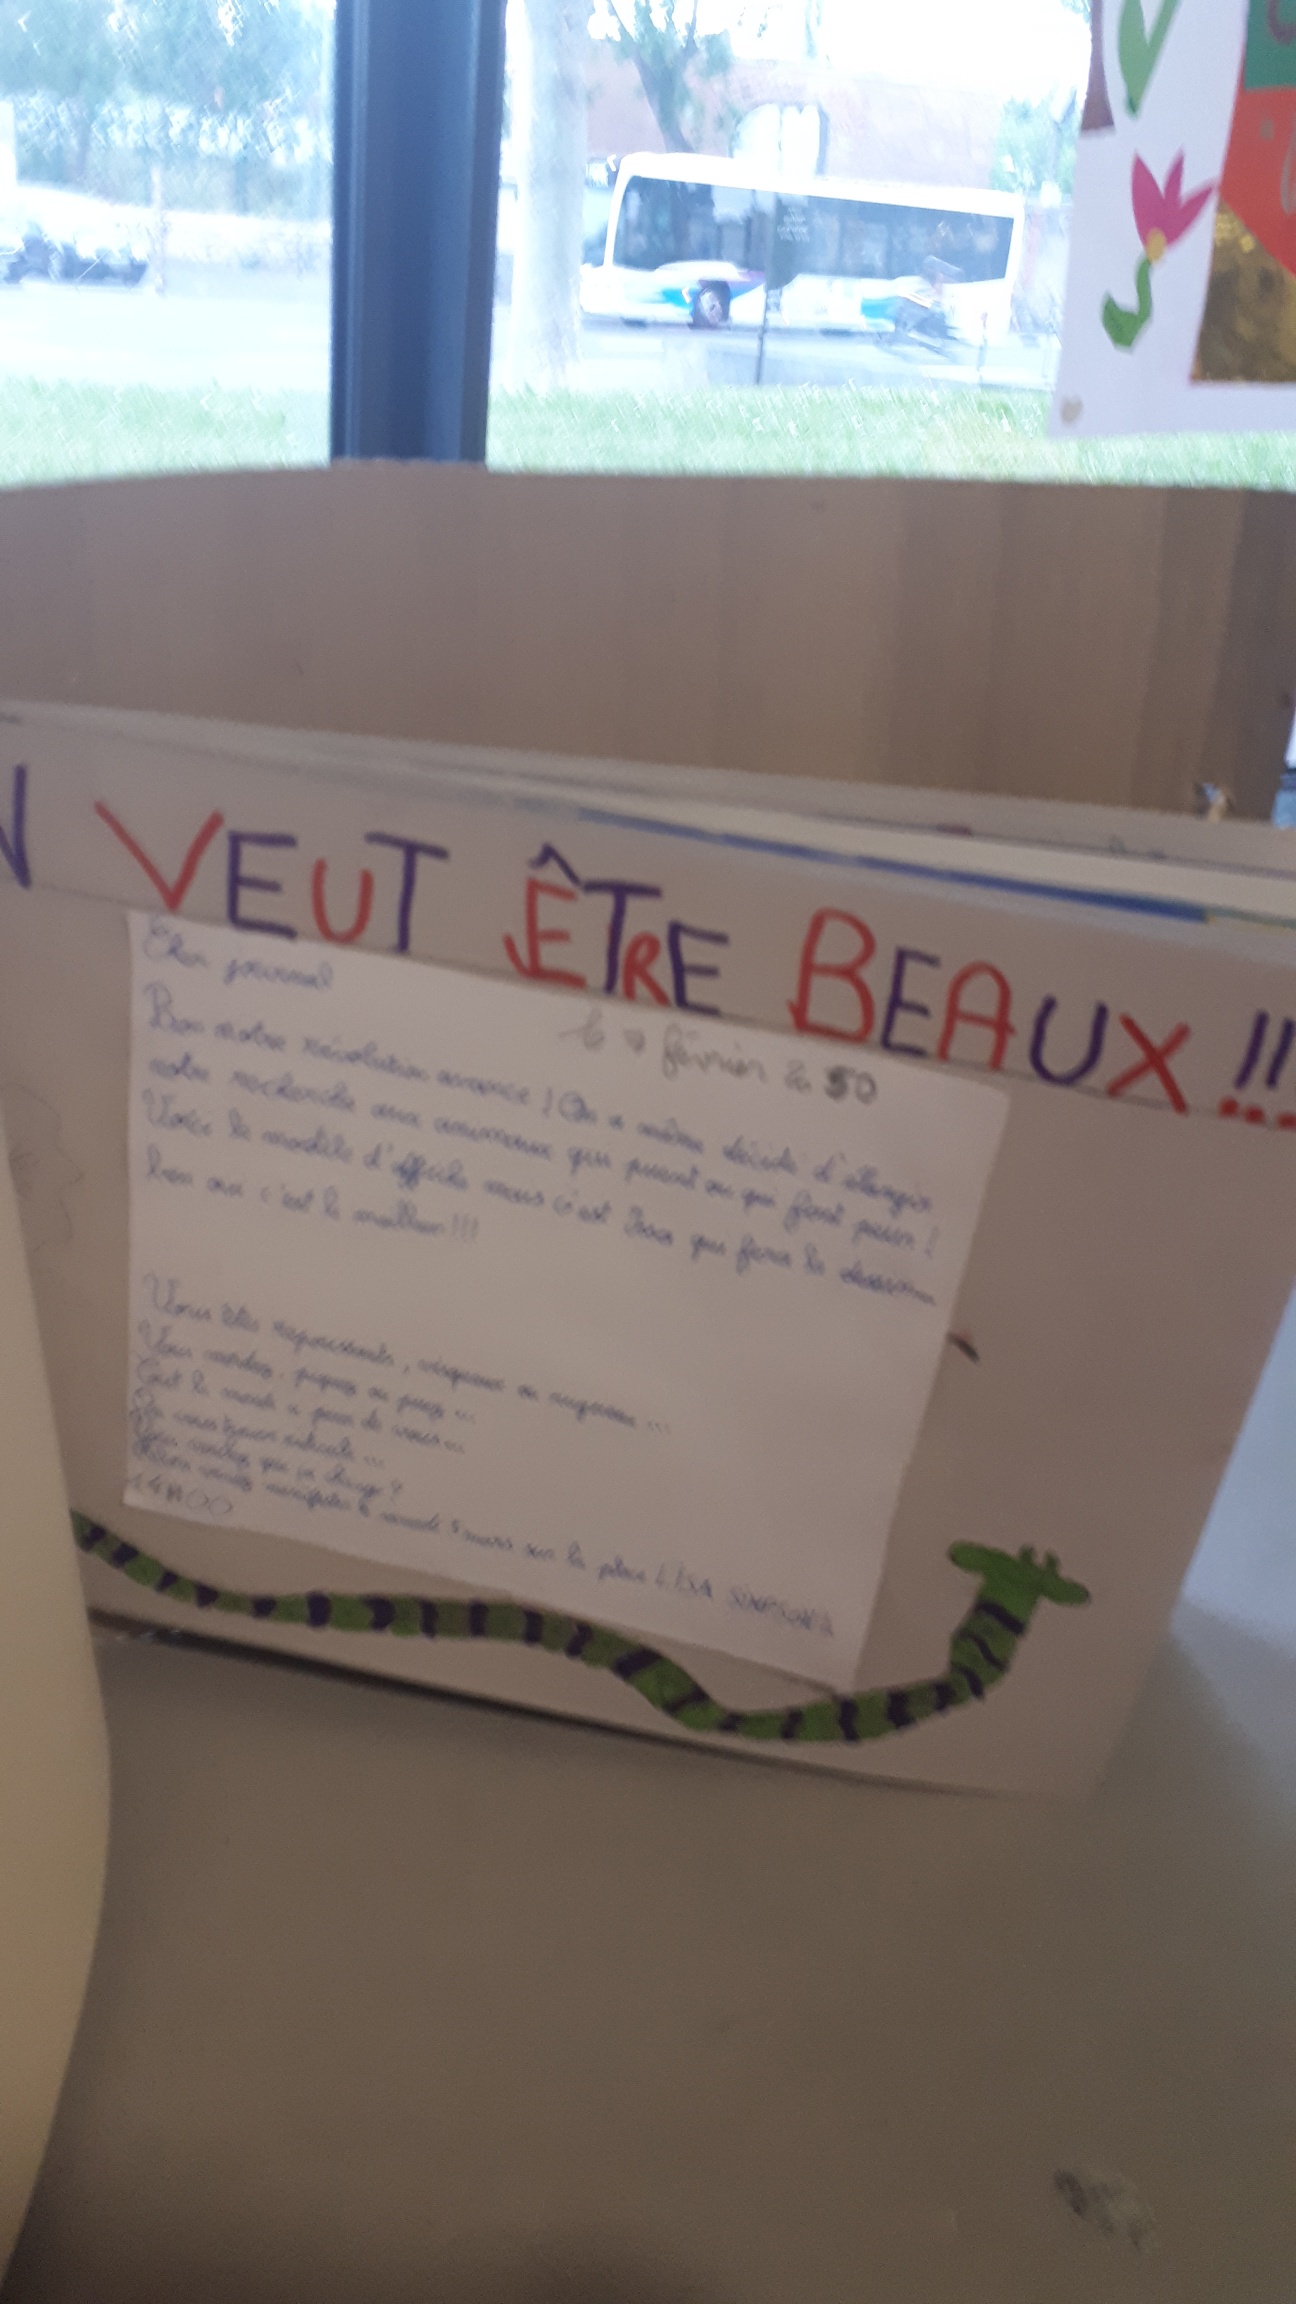 N VEUT ÊTRE BEAUX !!!
Cher journal
le 4 février 2050
Bon notre révolution avance ! On a même décidé d'élargir
notre recherche aux animaux qui puent ou qui font peur !
Voici le modèle d'affiche mais c'est qui fera le dessin
ben oui c'est le meilleur !!!
Vous êtes repoussants, visqueux ou rugueux ...
Vous mordez, piquez ou puez ...
Tout le monde a peur de vous ...
Vous voulez que ça change ?
sur la place LISA SIMPSON à
14H00